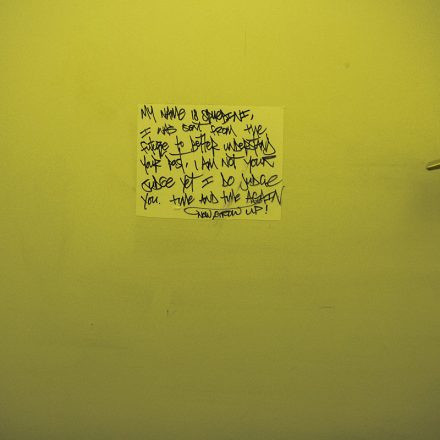 MY NAME IS
I WAS SENT FROM THE
FUTURE TO BETTER UNDERSTAND
YOUR PAST, I AM NOT YOUR
JUDGE YET I DO JUDGE
YOU. TIME AND TIME AGAIN
NOW GROW UP!